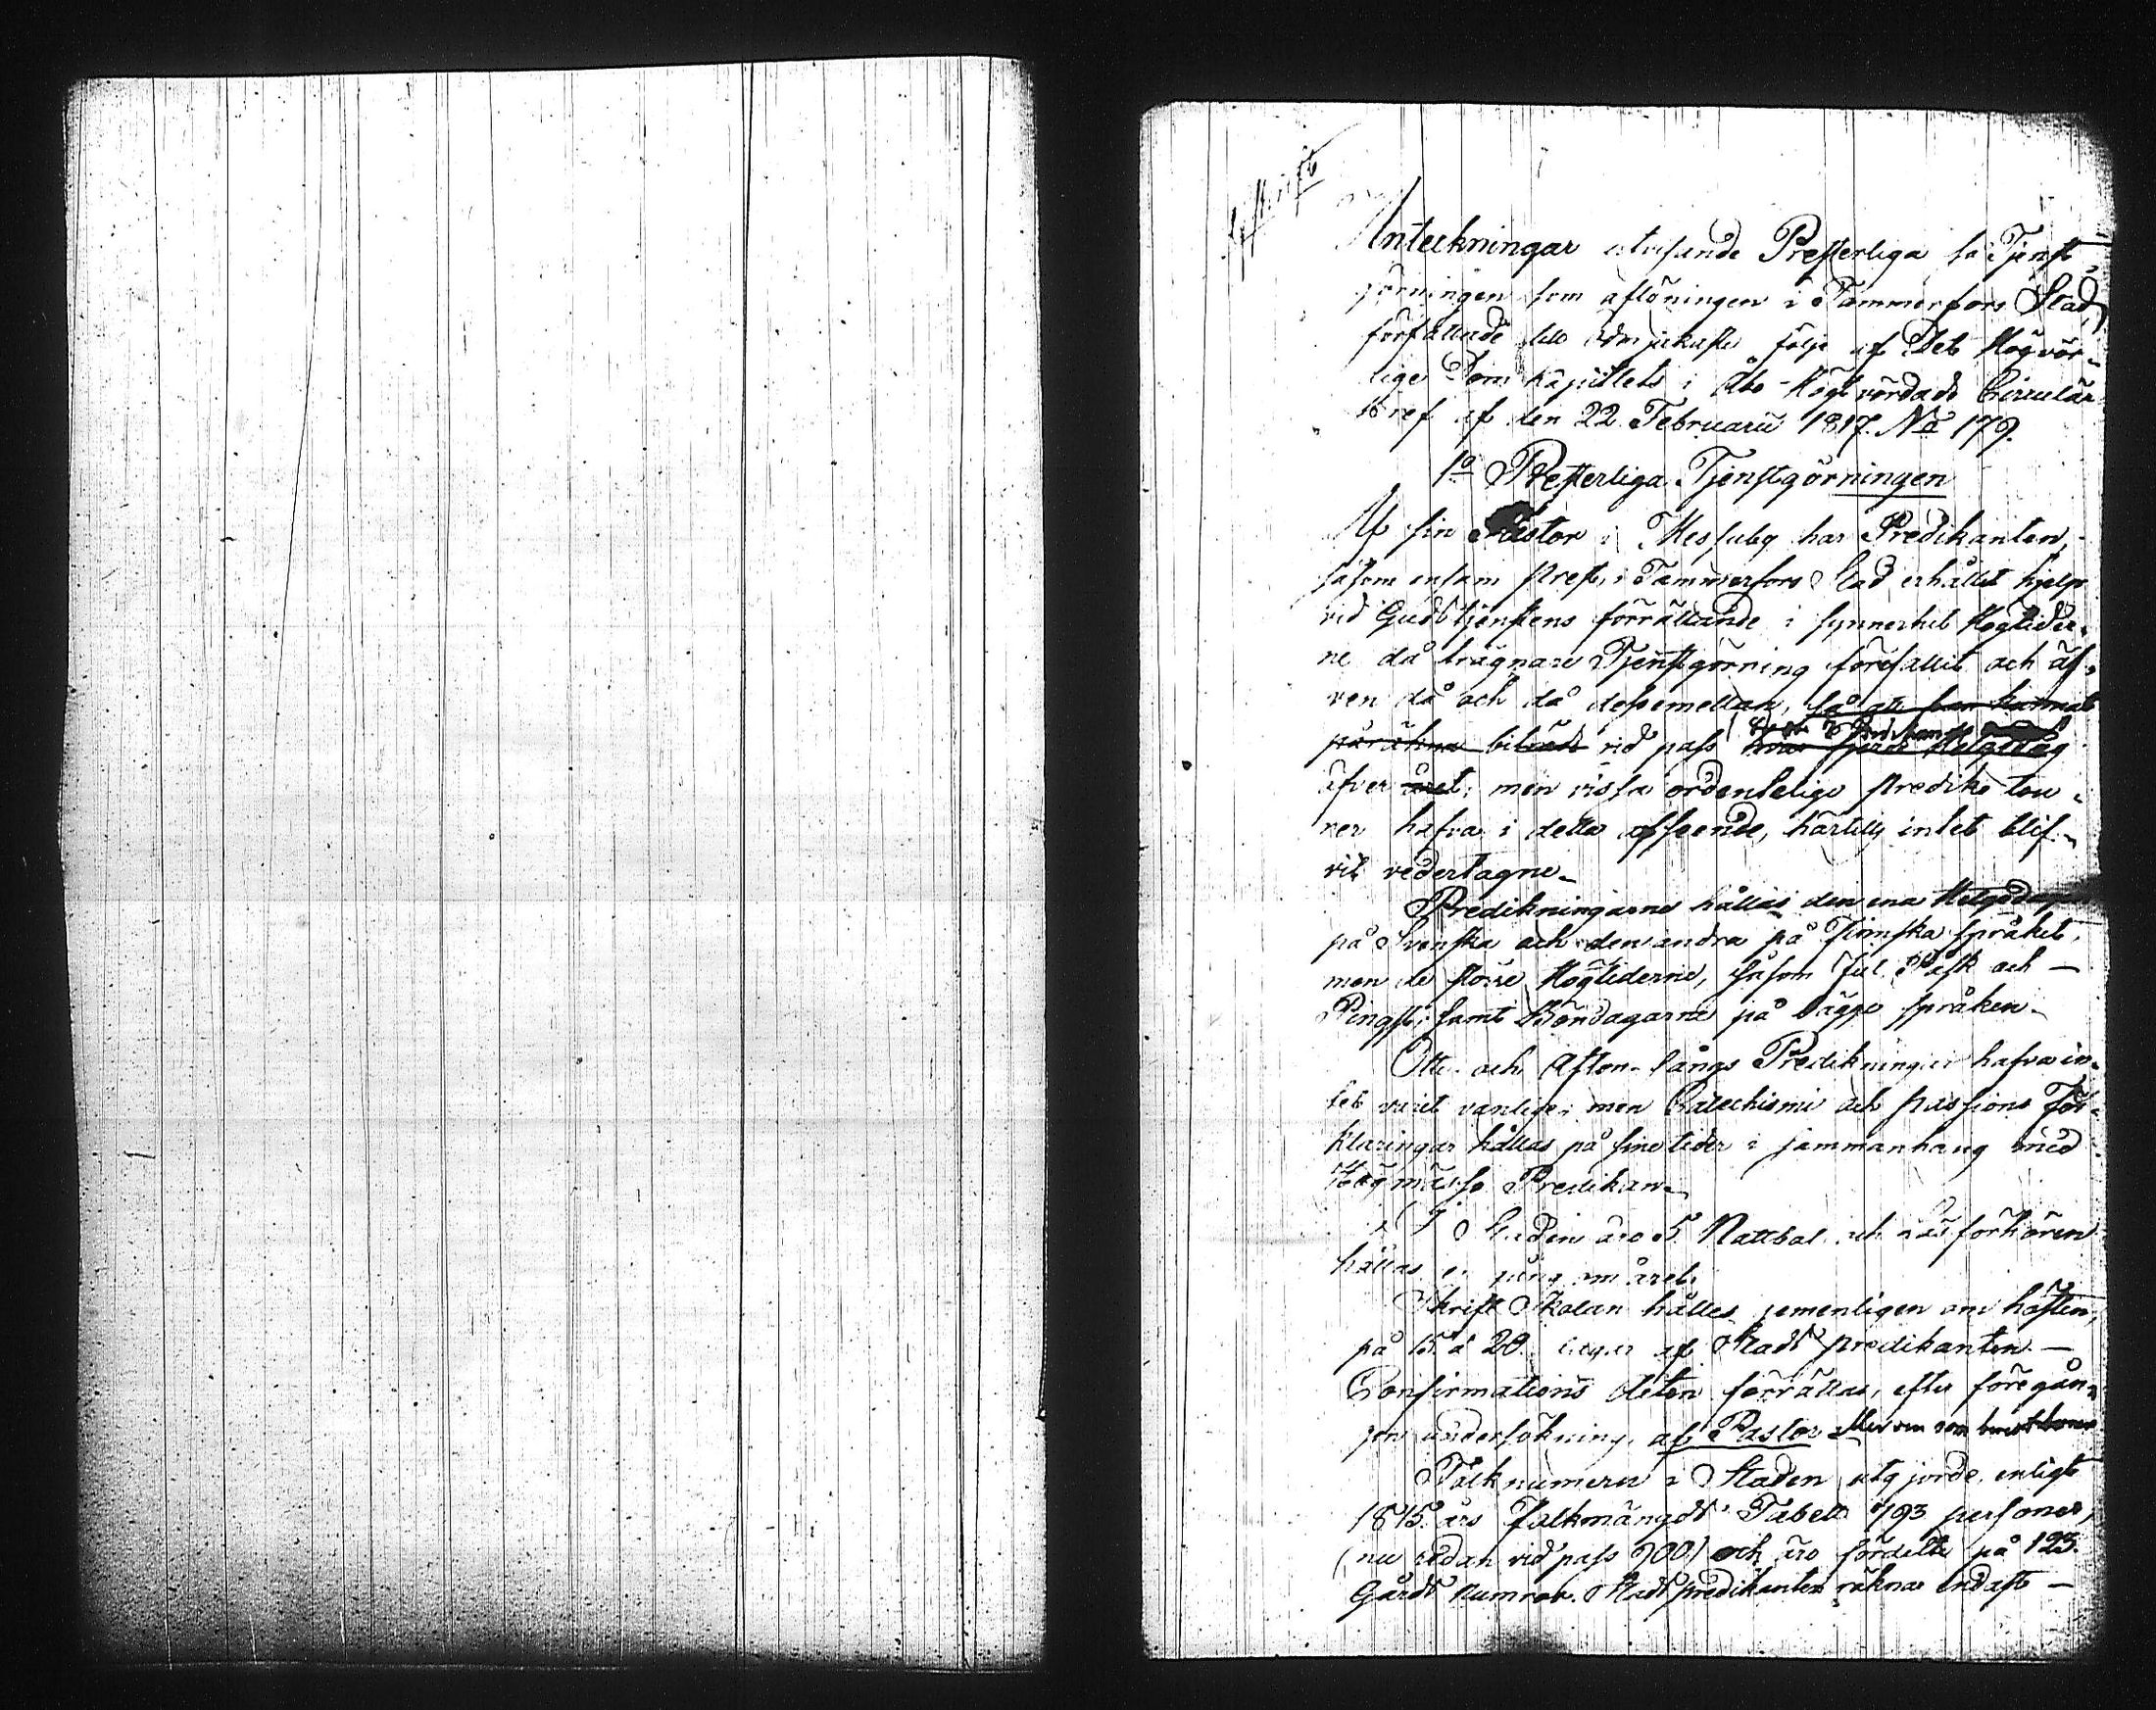 Afskrift
Anteckningar utvisande Presterliga så Tjenst-
görningen som aflöningen i Tammerfors Stad,
författade till ödmjukaste följe af Det Högvör-
lige Dom kapitlets i Åbo Högtvördade Circulär
bref af den 22 Februarii 1817. No 179.
1o Presterliga Tjenstgörningen
Af sin Pastor i Messuby har Predikanten,
såsom ensam Prest, i Tammerfors Stad erhållit hjelp
vid Gudstjenstens förrättande i synnerhet Högtider-
ne då trägnare Tjenstgörning förefallit och äf-
ven då och då dessemellan, så att han kunnat
påräkna biträde vid pass hvar fjerde Helgedag
öfver året; men vissa ordentelige prediko tou-
rer hafva i detta afseende, härtills intet blif-
vit vedertagne.
Predikningarne hållas den ena Helgedag
på Svenska och den andra på Finnska språket,
men de större Högtiderne, såsom Jul, Påsk och
Pingst, samt Böndagarne på bägge språken.
Otte- och Aftonsångs Predikningar hafva in-
tet varit vanlige; men Catechismi och passions För-
klaringar hållas på sine tider i sammanhang med
Högmässo Predikan.
I Staden äro 5 Nattbol och Läsförhören
hållas en gång om året.
Skrift Skolan hålles gemenligen om hösten,
på 15 à 20 dagar af Stads predikanten.
Confirmations Acten förrättas, efter föregån-
gen undersökning, af Pastor eller den som
Folknumern i Staden utgjorde enligt
1815 års Folkmängds Tabell 793 personer,
(nu redan vid pass 900) och äro fördelte på 123
Gårds numror. Stads predikanten räknar endast